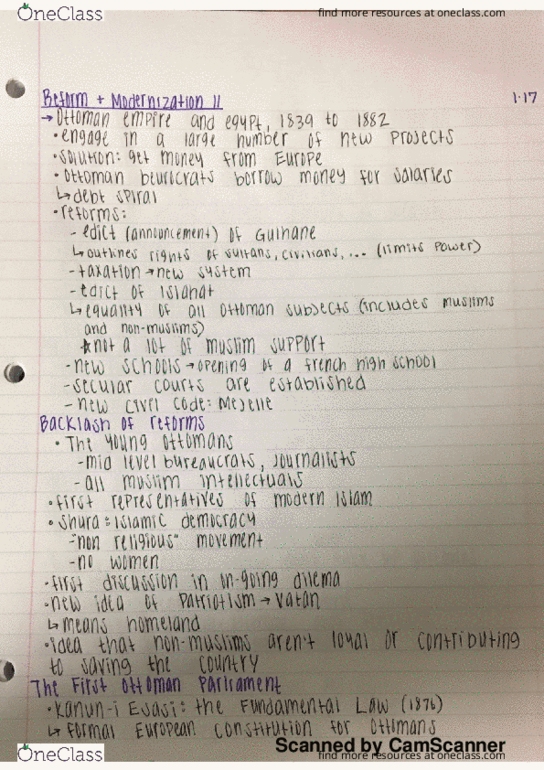 OneClass
find more resources at oneclass.com
Reform + Modernization II
1.17
→ Ottoman empire and egypt, 1839 to 1882
• engage in a large number of new projects
• solution: get money from Europe
• Ottoman beurocrats borrow money for salaries
↳ debt spiral
• reforms:
- edict (announcement) of Gulhane
↳ outlines rights of sultans, civilians, ... (limits power)
- taxation → new system
- edict of Islahat
↳ equality of all Ottoman subjects (includes muslims
and non-muslims)
* not a lot of muslim support
- new schools → opening of a french high school
- secular courts are established
- new civil code: Mejelle
Backlash of reforms
• The young Ottomans
- mid level bureaucrats, journalists
- all muslim intellectuals
• first representatives of modern Islam
• Shura = Islamic democracy
- "non religious" movement
- no women
• first discussion in on-going dilema
• new idea of Patriotism → Vatan
↳ means homeland
• idea that non-muslims aren't loyal or contributing
to saving the country
The First Ottoman Parliament
• Kanun-i Esasi: the Fundamental Law (1876)
↳ formal European constitution for Ottomans
Scanned by CamScanner
OneClass
find more resources at oneclass.com